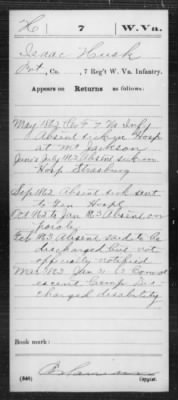 H 7 W. Va.
Isaac Husk
Pvt, Co. , 7 Reg't W. Va. Infantry.
Appears on Returns as follows:
May 1862 Co F 7 Va Infy
Absent sick in Hosp
at Mt Jackson
June & July 1862 Absent sick in
Hosp Strasburg
Sep 1862 Absent sick sent
to Gen Hospl
Oct 1862 to Jan 1863 Absent on
parole
Feb 1863 Absent said to be
discharged but not
officially notified
Mar 1863 Jan Conval
escent Camp Dis-
charged disability
Book mark:
(546) Copyist.